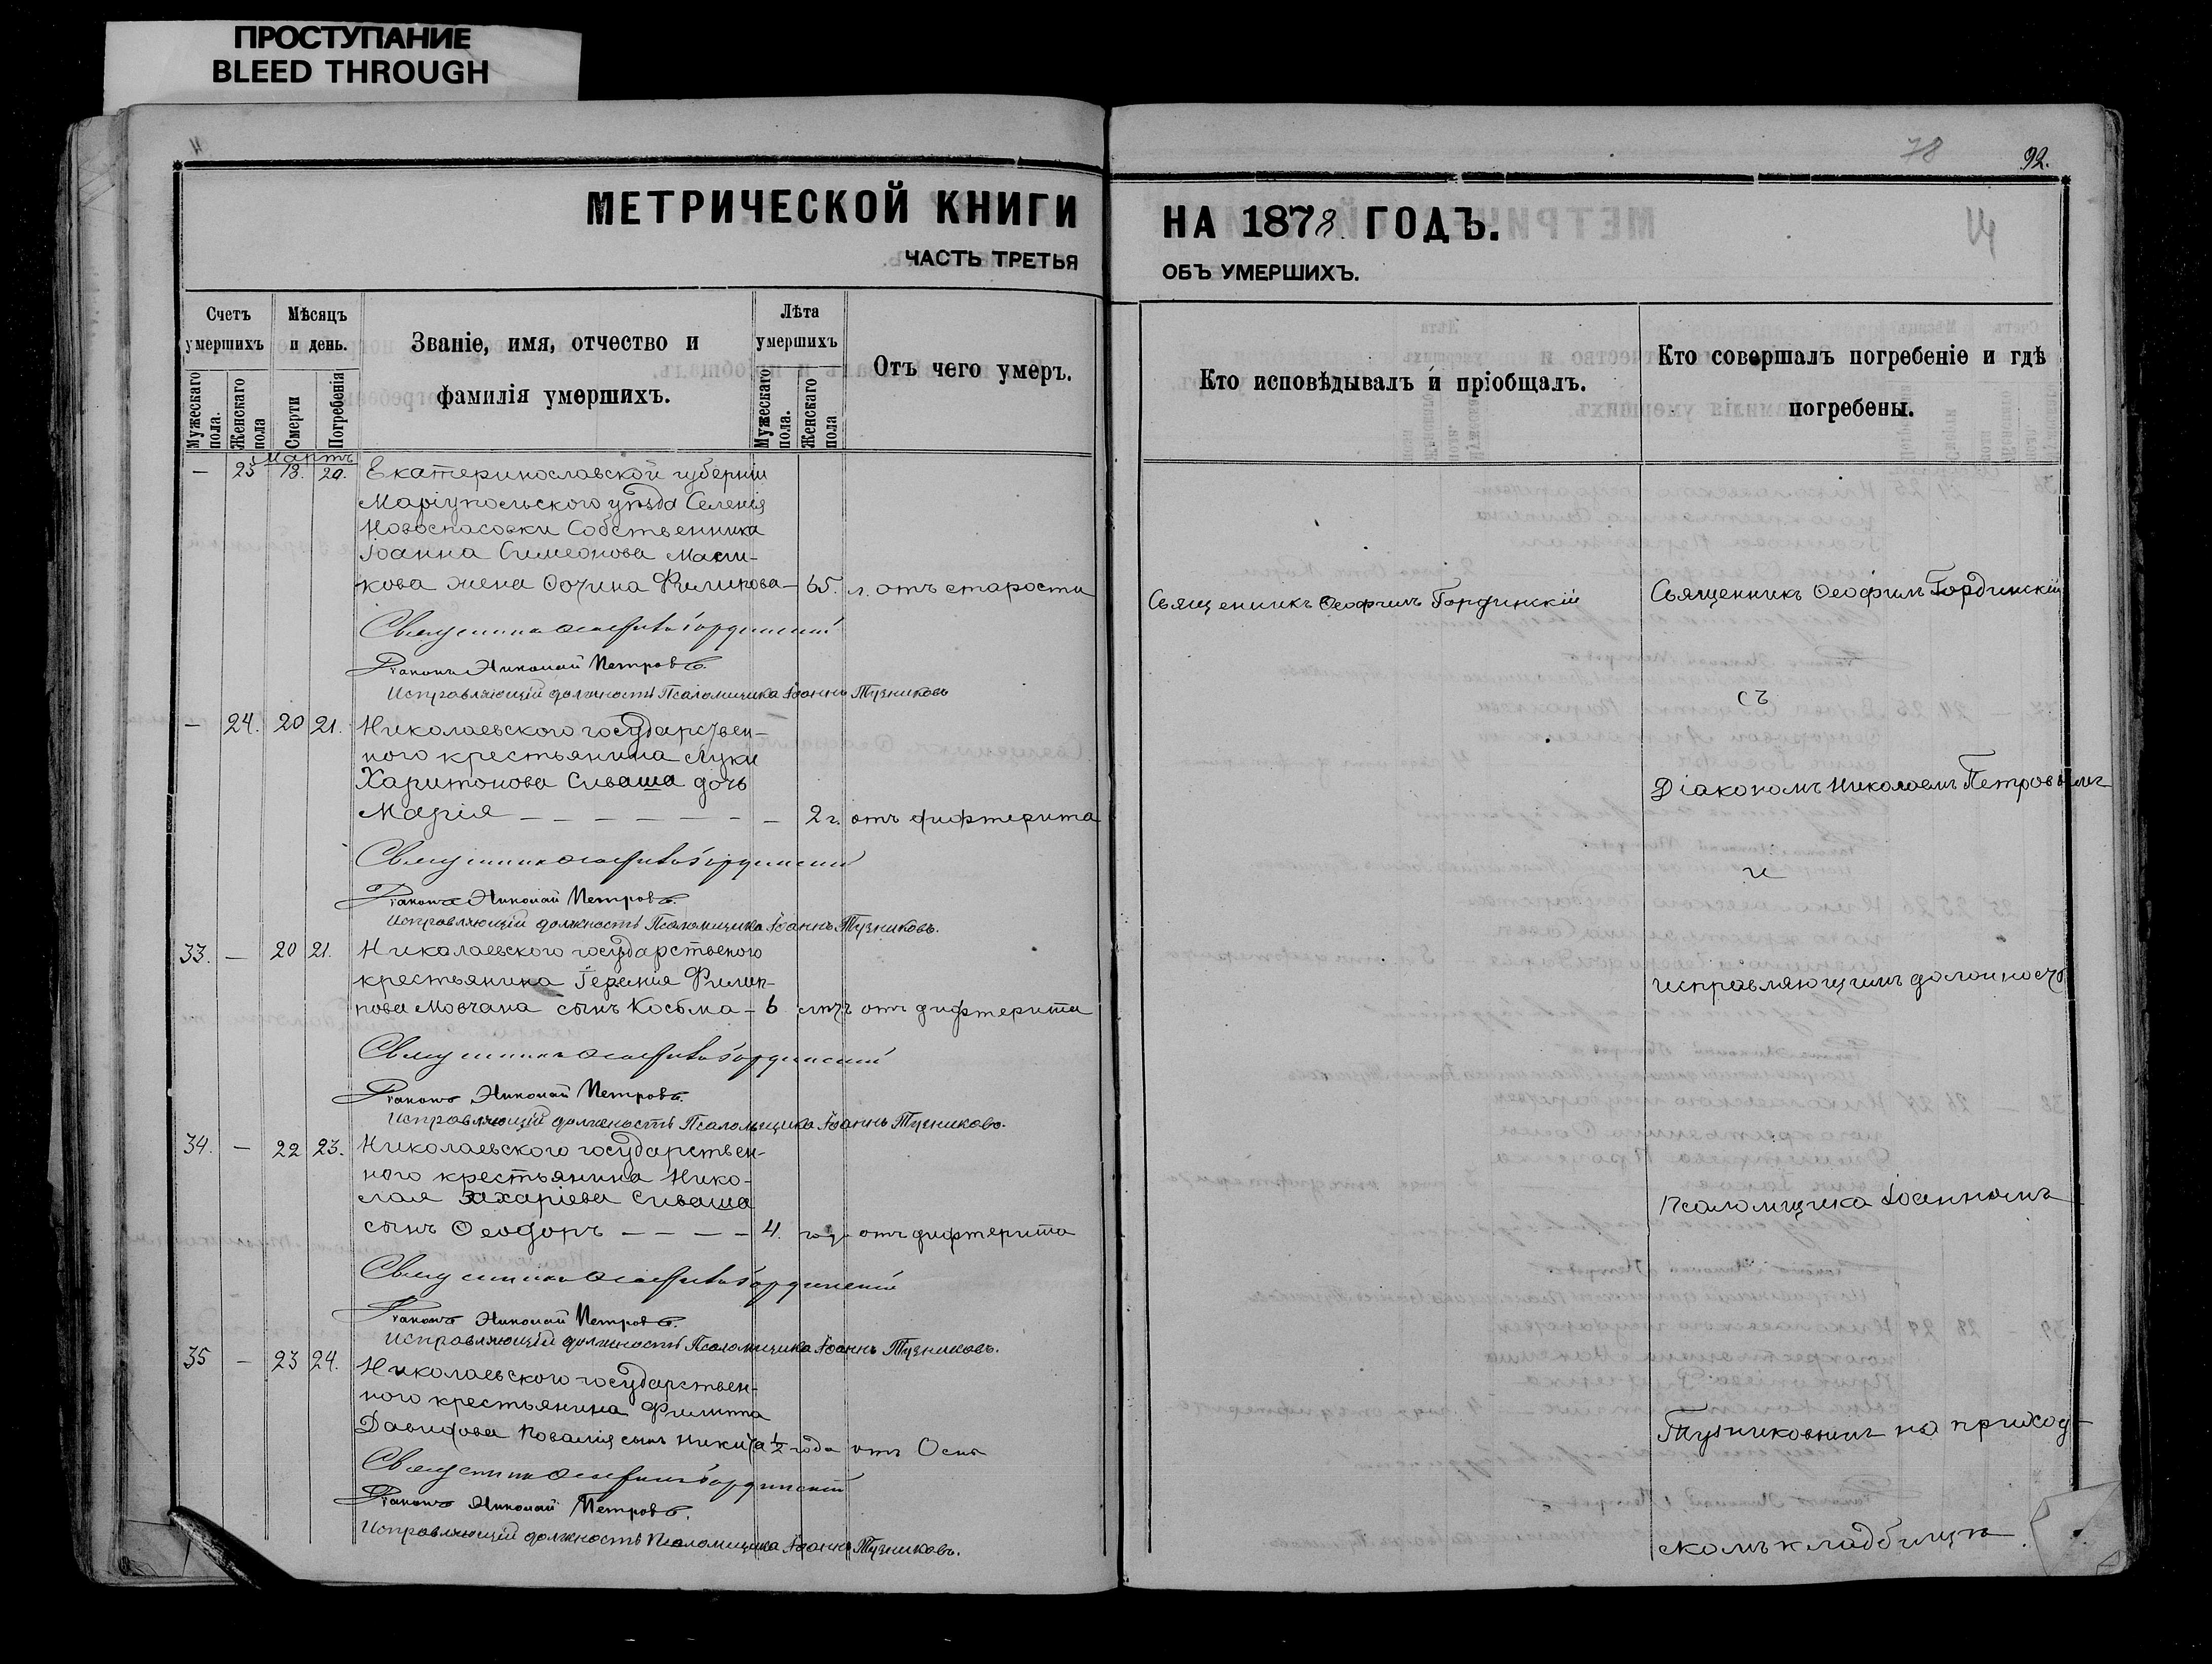 ПРОСТУПАНИЕ
BLEED THROUGH
МЕТРИЧЕСКОЙ КНИГИ
ЧАСТЬ ТРЕТЬЯ
Счетъ умершихъ
Мужескаго пола.
Женскаго пола
Мѣсяцъ и день.
Смерти
Погребенія
Званіе, имя, отчество и
фамилія умершихъ.
Лѣта умершихъ
Мужескаго пола.
Женскаго пола
Отъ чего умеръ.
Мартъ
— 23 18. 20. Екатеринославской губерніи
Маріупольского уѣзда Селенія
Новоспасовки Собственника
Іоанна Симеонова
кова жена Филипова — 65. л. отъ старости
Священникъ Ѳеофилъ Гординскій
Діаконъ Николай Петровъ.
Исправляющій должность Псаломщика Іоаннъ Тузниковъ
— 24. 20 21. Николаевского государствен-
ного крестьянина Луки
Харитонова Сиваша дочь
Марія — — — — — — — 2 г. отъ дифтерита
Священникъ Ѳеофилъ Гординскій
Діаконъ Николай Петровъ.
Исправляющій должность Псаломщика Іоаннъ Тузниковъ.
33. — 20 21. Николаевского государственого
крестьянина Филип-
пова Мовчана сынъ Косьма — 6 лѣтъ отъ дифтерита
Священникъ Ѳеофилъ Гординскій
Діаконъ Николай Петровъ.
Исправляющій должность Псаломщика Іоаннъ Тузниковъ.
34. — 22 23. Николаевского государствен-
ного крестьянина Нико-
лая Захаріева Сиваша
сынъ Ѳеодоръ — — — — 4. год. отъ дифтерита
Священникъ Ѳеофилъ Гординскій
Діаконъ Николай Петровъ.
Исправляющій должность Псаломщика Іоаннъ Тузниковъ.
35 — 23 24. Николаевского государствен-
ного крестьянина Филиппа
Давидова Коваля сынъ Никита ½ года отъ Оспы
Священникъ Ѳеофилъ Гординскій
Діаконъ Николай Петровъ.
Исправляющій должность Псаломщика Іоаннъ Тузниковъ.
78
92.
НА 1878 ГОДЪ.
ОБЪ УМЕРШИХЪ.
Кто исповѣдывалъ и пріобщалъ.
Кто совершалъ погребеніе и гдѣ
погребены.
Священникъ Ѳеофилъ Гординскій
Священникъ Ѳеофилъ Гординскій
съ
Діакономъ Николаемъ Петровымъ
и
исправляющимъ должность
Псаломщика Іоанномъ
Тузниковымъ на приход-
скомъ кладбищѣ.